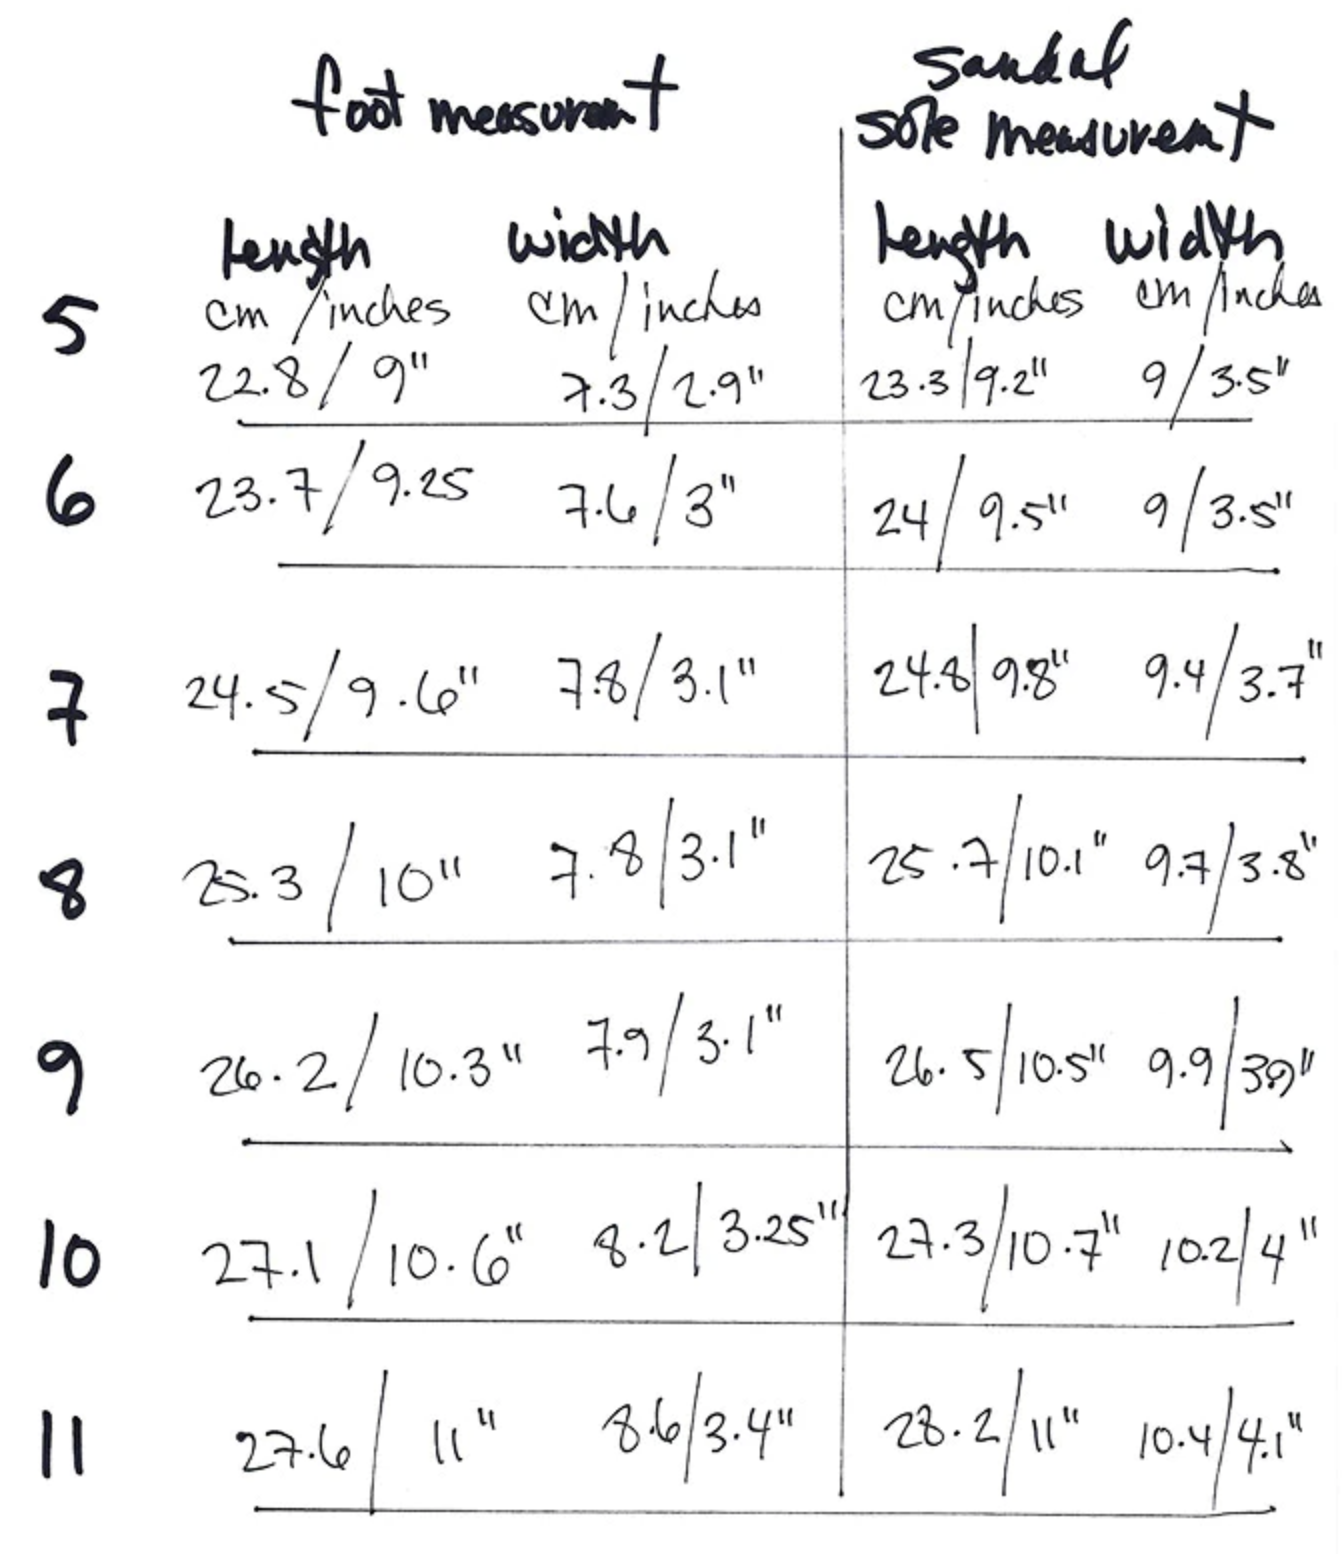 foot measurement
sandal
sole measurement
length width length width
5 cm/inches cm/inches cm/inches cm/inches
22.8/9" 7.3/2.9" 23.3/9.2" 9/3.5"
6 23.7/9.25 7.6/3" 24/9.5" 9/3.5"
7 24.5/9.6" 7.8/3.1" 24.8/9.8" 9.4/3.7"
8 25.3/10" 7.8/3.1" 25.7/10.1" 9.7/3.8"
9 26.2/10.3" 7.9/3.1" 26.5/10.5" 9.9/39"
10 27.1/10.6" 8.2/3.25" 27.3/10.7" 10.2/4"
11 27.6/11" 8.6/3.4" 28.2/11" 10.4/4.1"